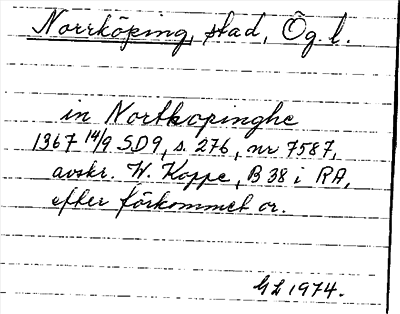 Norrköping, stad, Ög. l.
in Nortkopinghe
1367 14/9 SD9, s. 276, nr 7587,
avskr. W. Koppe, B 38 i RA,
efter förkommet or.
GL 1974.